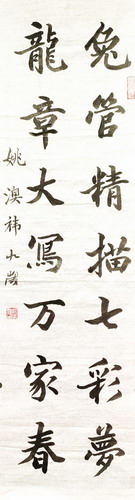 兔管精描七彩夢
龍章大寫万家春
姚澳祎九歲